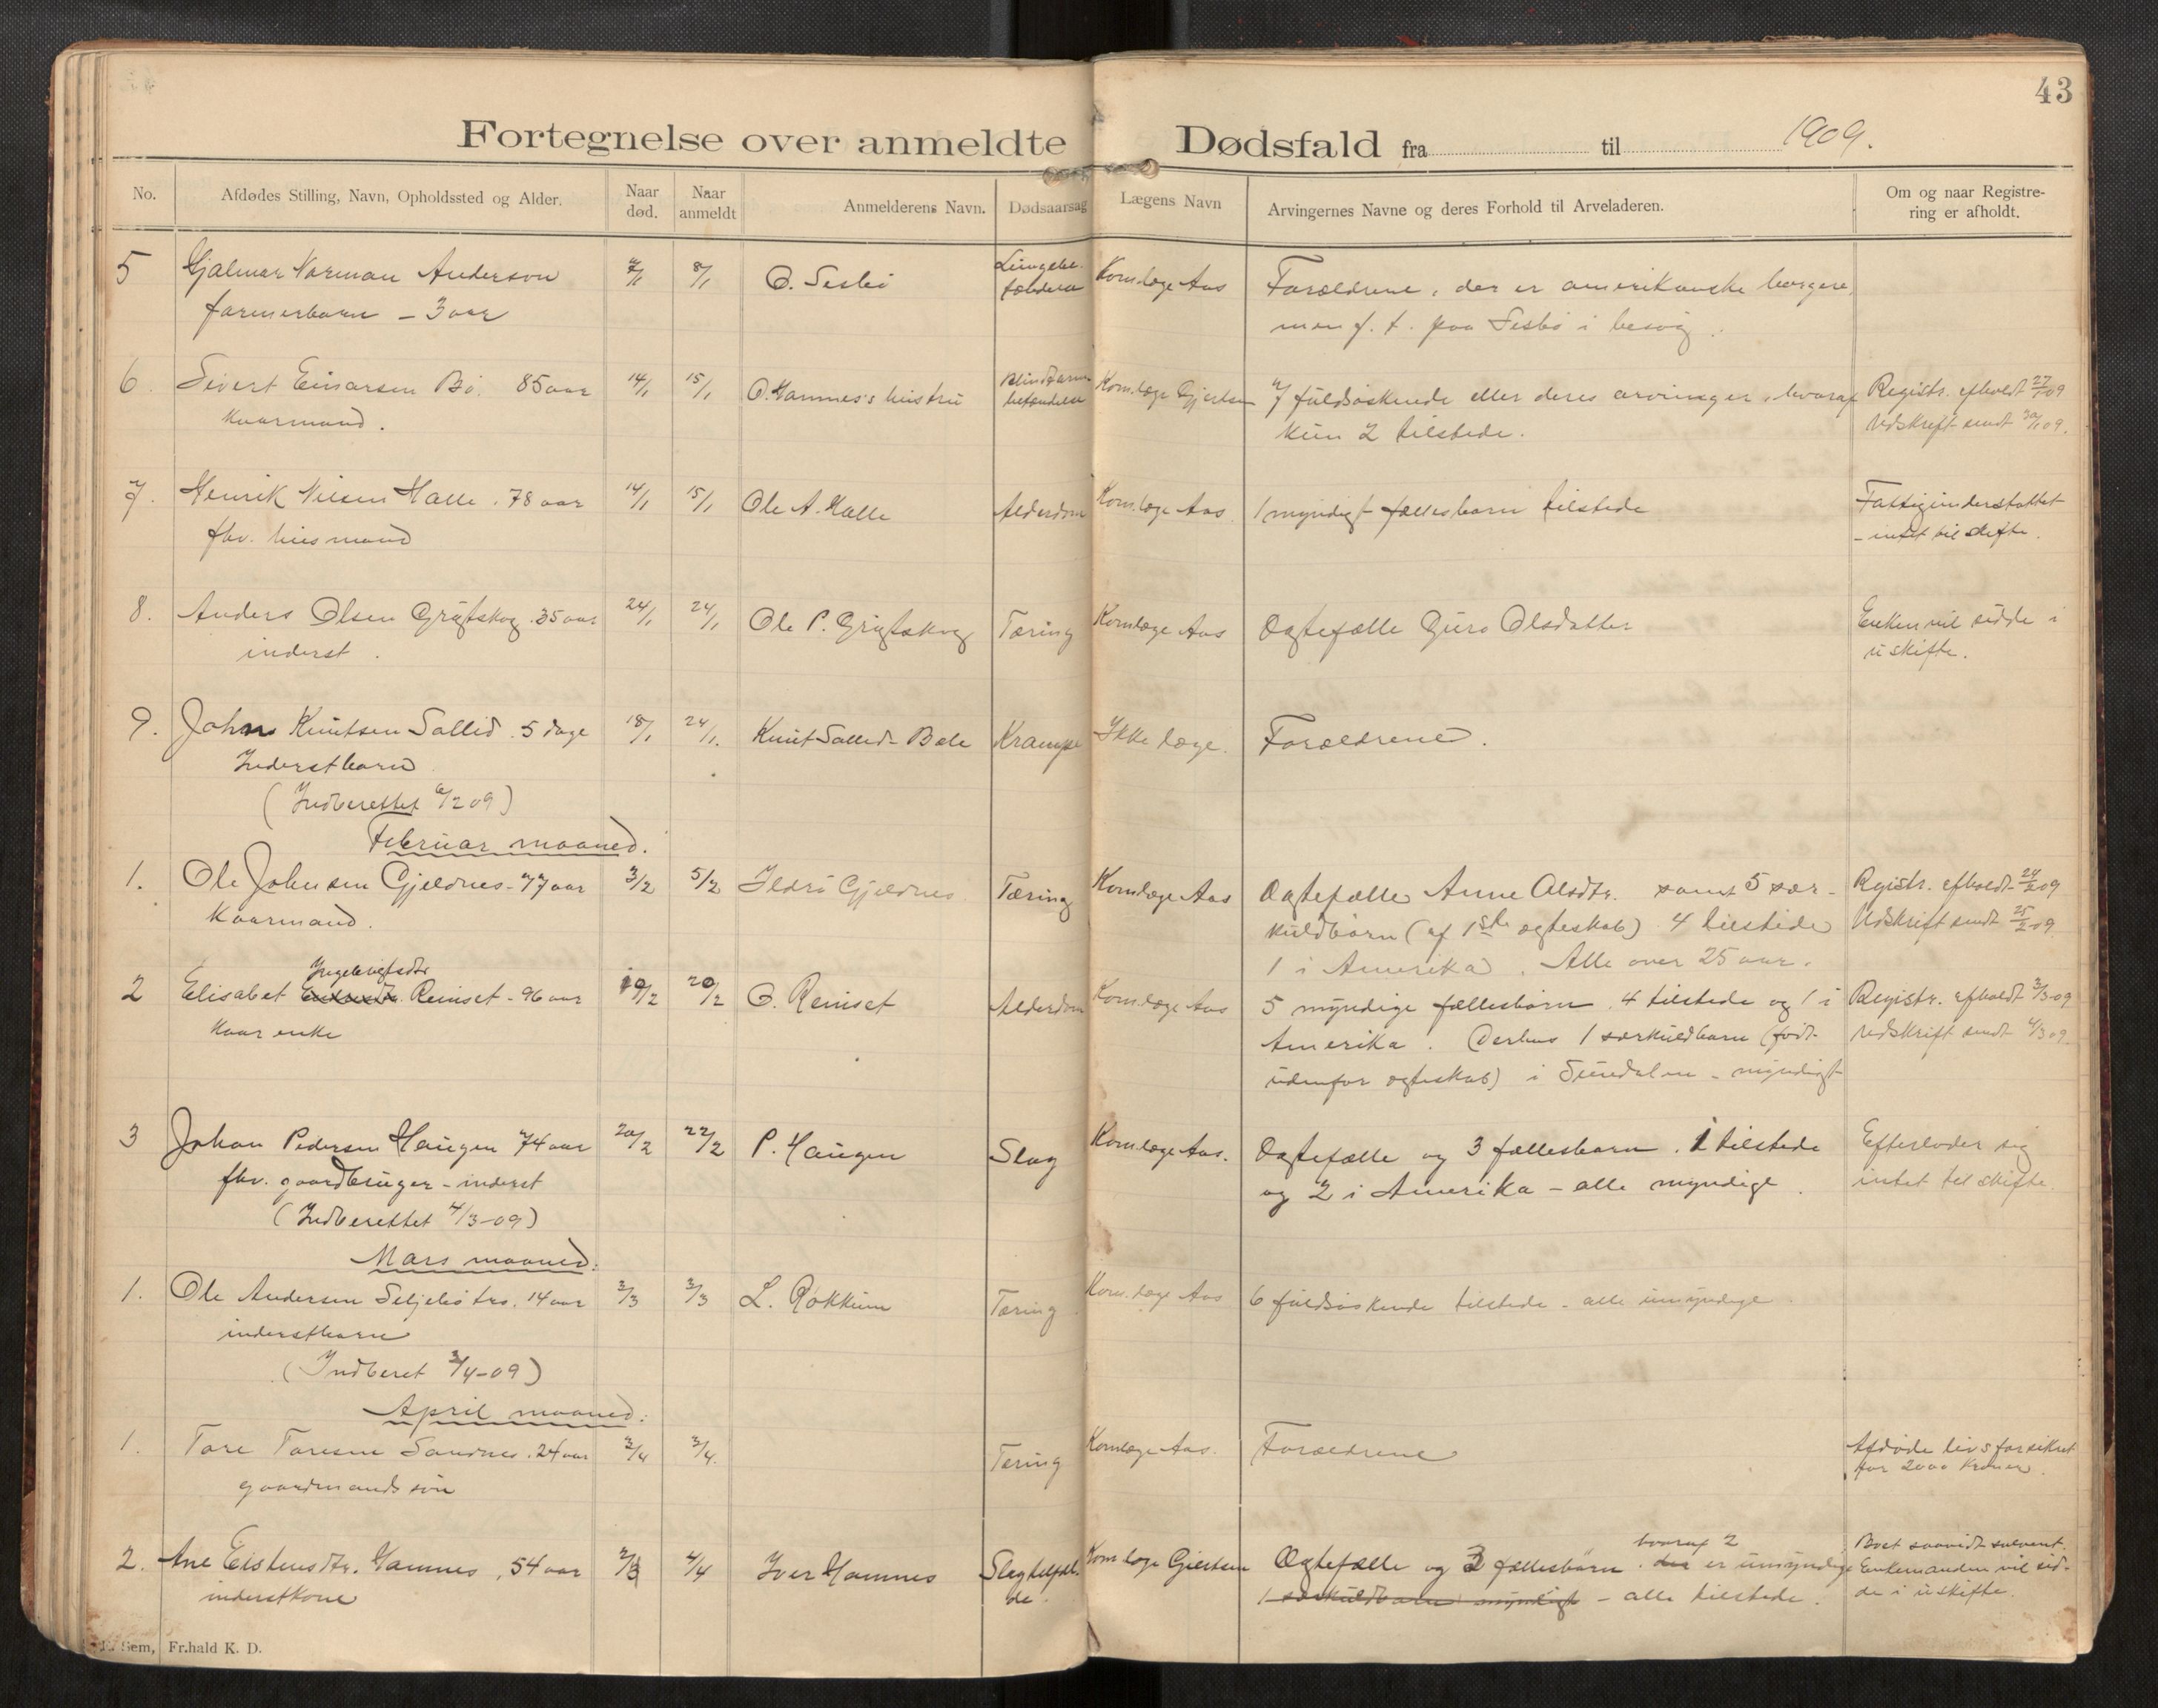 43
Fortegnelse over anmeldte Dødsfald fra til 1909.
No. Afdødes Stilling, Navn, Opholdssted og Alder. Naar død. Naar anmeldt Anmelderens Navn. Dødsaarsag Lægens Navn Arvingernes Navne og deres Forhold til Arveladeren. Om og naar Registrering er afholdt.
5 Hjalmar Norman Anderson 7/1 8/1 O. Sesbø Komlæge Aas Forældrene, der er amerikanske borgere,
farmerbarn - 3 aar men f. t. paa Sesbø i besøg.
6. Sivert Einarsen Bø. 85 aar 14/1 15/1 O. Hamnes's hustru Blindtarm- Kom.læge Gjertsen 7 fuldsøskende eller deres arvinger, hvoraf Registr. afholdt 27/1 09
Kaarmand. betændelse kun 2 tilstede. Udskrift sendt 30/1 09.
7. Henrik Nilsen Halle. 78 aar 14/1 15/1 Ole A. Halle Alderdom Kom.læge Aas 1 myndigt fællesbarn tilstede Fattigunderstøttet
fhv. husmand - intet til skifte.
8. Anders Olsen Grøftskog. 35 aar 24/1 24/1 Ole P. Grøftskog Tæring Komlæge Aas Ægtefælle Guro Olsdatter Enken vil sidde i
inderst. uskifte.
9. John Knutsen Sollid. 5 dage 18/1 24/1. Knut Sollid - Bele Krampe Ikke læge. Forældrene.
Inderstbarn
(Indberettet 6/2 09)
Februar maaned.
1. Ole Johnsen Gjeldnes - 77 aar 3/2 5/2 Ildri Gjeldnes Tæring Komlæge Aas Ægtefælle Anne Olsdtr. samt 5 sær- Rgistr. afholdt 24/2 09
Kaarmand. kuldbørn (af 1ste ægteskab) 4 tilstede Udskrift sendt 25/2 09
1 i Amerika. Alle over 25 aar.
Ingebrigtsdtr
2 Elisabet Reinset - 96 aar 19/2 20/2 O. Reinset Alderdom Kom.læge Aas 5 myndige fællesbørn. 4 tilstede og 1 i Registr. afholdt 3/3-09
Kaarenke Amerika. Derhos 1 særkuldbarn (født Udskrift sendt 4/3 09.
udenfor ægteskab) i Sundalen - myndigt
3 Johan Pedersen Haugen 74 aar 20/2 22/2 P. Haugen Slag Komlæge Aas. Ægtefælle og 3 fællesbarn. 1 tilstede Efterlader sig
fhv. gaardbruger - inderst og 2 i Amerika - alle myndige. intet til skifte.
(Indberettet 4/3-09)
Mars maaned:
1. Ole Andersen Seljebøtrø. 14 aar 2/3 3/3 L. Rokkum Tæring Kom.læge Aas 6 fuldsøskende tilstede - alle umyndige.
inderstbarn
(Indberet 3/4-09)
April maaned:
1. Tore Toresen Sandnes. 24 aar 2/4 3/4. Tæring Komlæge Aas. Forældrene Afdøde livsforsikret
gaardmandssøn for 2000 kroner.
hvoraf 2
2. Ane Eistensdtr. Hamnes, 54 aar 2/3 4/4 Iver Hamnes Slagtilfæl- Kom læge Gjertsen Ægtefælle og 3 fællesbørn. der er umyndige Boet saavidt solvent.
inderstkone de. 1 særkuldbarn myndigt - alle tilstede. Enkemanden vil sid-
de i uskifte.
Sem, Fr.hald K. D.